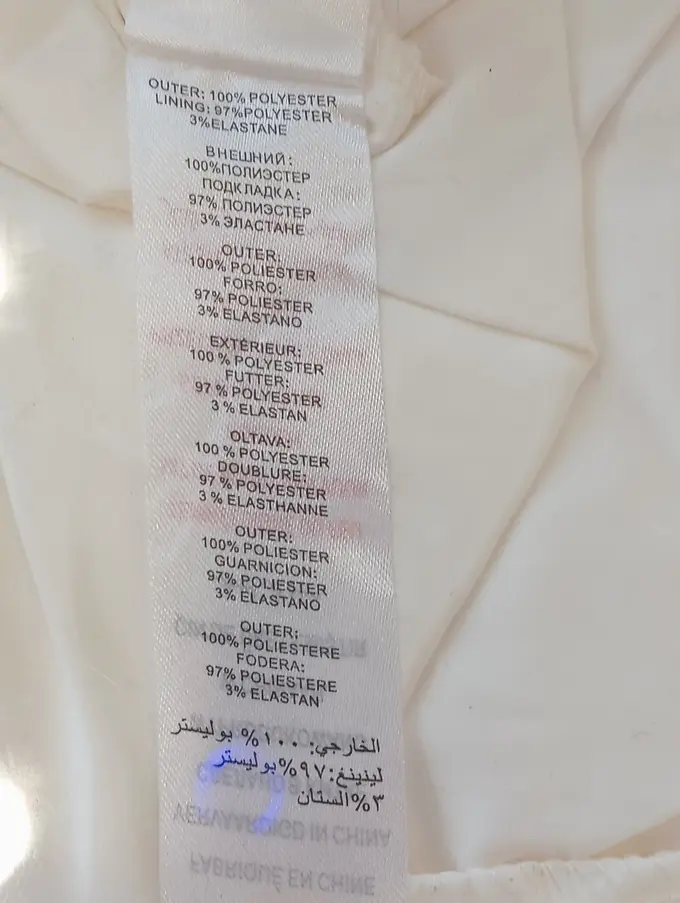 OUTER: 100% POLYESTER
LINING: 97%POLYESTER
3%ELASTANE
ВНЕШНИЙ:
100%ПОЛИЭСТЕР
ПОДКЛАДКА:
97% ПОЛИЭСТЕР
3% ЭЛАСТАНЕ
OUTER:
100% POLIESTER
FORRO:
97% POLIESTER
3% ELASTANO
EXTÉRIEUR:
100 % POLYESTER
FUTTER:
97 % POLYESTER
3 % ELASTAN
OLTAVA:
100 % POLYESTER
DOUBLURE:
97 % POLYESTER
3 % ELASTHANNE
OUTER:
100% POLIESTER
GUARNICION:
97% POLIESTER
3% ELASTANO
OUTER:
100% POLIESTERE
FODERA:
97% POLIESTERE
3% ELASTAN
الخارجي: ١٠٠% بوليستر
لينينغ:٩٧%بوليستر
٣%الستان
VERVAARDIGD IN CHINA
FABRIQUÉ EN CHINE